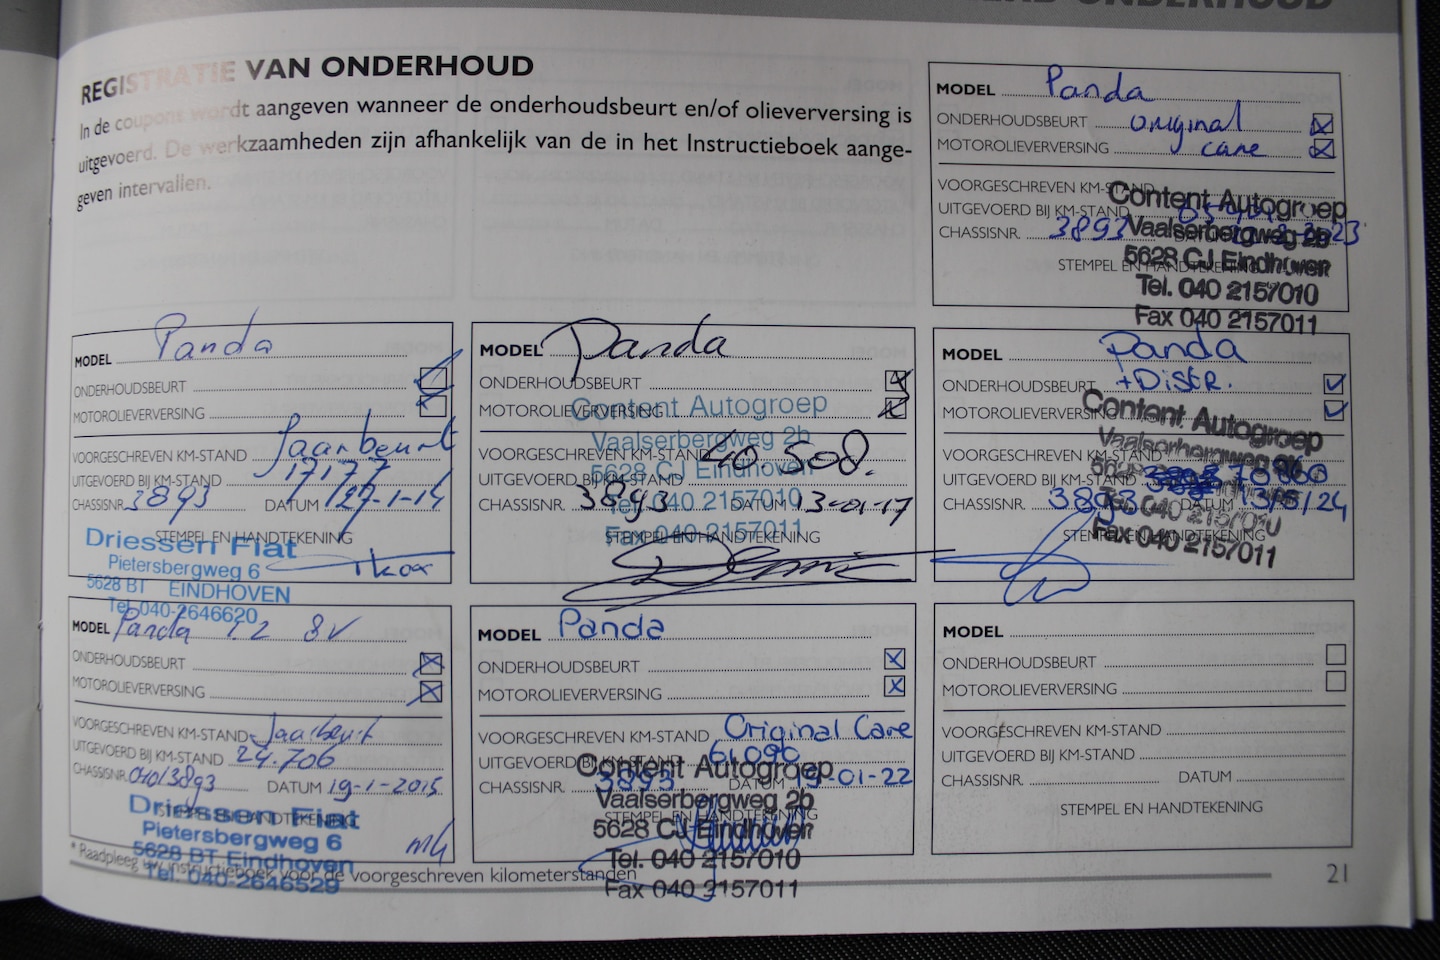 ONDERHOUD
REGISTRATIE VAN ONDERHOUD
In de coupons wordt aangeven wanneer de onderhoudsbeurt en/of olieverversing is
uitgevoerd. De werkzaamheden zijn afhankelijk van de in het Instructieboek aange-
geven intervallen.
MODEL Panda
ONDERHOUDSBEURT original
MOTOROLIEVERVERSING care
VOORGESCHREVEN KM-STAND
UITGEVOERD BIJ KM-STAND
CHASSISNR. 3893 DATUM
STEMPEL EN HANDTEKENING
Content Autogroep
Vaalserbergweg 2b
5628 CJ Eindhoven
Tel. 040 2157010
Fax 040 2157011
MODEL Panda
ONDERHOUDSBEURT
MOTOROLIEVERVERSING
VOORGESCHREVEN KM-STAND Jaarbeurt
UITGEVOERD BIJ KM-STAND 17177
CHASSISNR. 3893 DATUM 27-1-14
STEMPEL EN HANDTEKENING
Driessen Fiat
Pietersbergweg 6
5628 BT EINDHOVEN
Tel. 040-2646620
MODEL Panda
ONDERHOUDSBEURT
MOTOROLIEVERVERSING
VOORGESCHREVEN KM-STAND 40.508.
UITGEVOERD BIJ KM-STAND
CHASSISNR. 3893 DATUM 13-01-17
STEMPEL EN HANDTEKENING
Content Autogroep
Vaalserbergweg 2b
5628 CJ Eindhoven
Tel. 040 2157010
Fax 040 2157011
MODEL Panda
ONDERHOUDSBEURT + Distr.
MOTOROLIEVERVERSING
VOORGESCHREVEN KM-STAND
UITGEVOERD BIJ KM-STAND 70860
CHASSISNR. 3893 DATUM 13/5/24
STEMPEL EN HANDTEKENING
Content Autogroep
Vaalserbergweg
Tel. 040 2157010
Fax 040 2157011
MODEL Panda 1.2 8V
ONDERHOUDSBEURT
MOTOROLIEVERVERSING
VOORGESCHREVEN KM-STAND Jaarbeurt
UITGEVOERD BIJ KM-STAND 24.706
CHASSISNR. 3893 DATUM 19-1-2015
STEMPEL EN HANDTEKENING
Driessen Fiat
Pietersbergweg 6
5628 BT Eindhoven
Tel. 040-2646529
MODEL Panda
ONDERHOUDSBEURT
MOTOROLIEVERVERSING
VOORGESCHREVEN KM-STAND Original Care
UITGEVOERD BIJ KM-STAND 61.096
CHASSISNR. 3893 DATUM 19-01-22
STEMPEL EN HANDTEKENING
Content Autogroep
Vaalserbergweg 2b
5628 CJ Eindhoven
Tel. 040 2157010
Fax 040 2157011
MODEL
ONDERHOUDSBEURT
MOTOROLIEVERVERSING
VOORGESCHREVEN KM-STAND
UITGEVOERD BIJ KM-STAND
CHASSISNR. DATUM
STEMPEL EN HANDTEKENING
* Raadpleeg uw instructieboek voor de voorgeschreven kilometerstanden
21